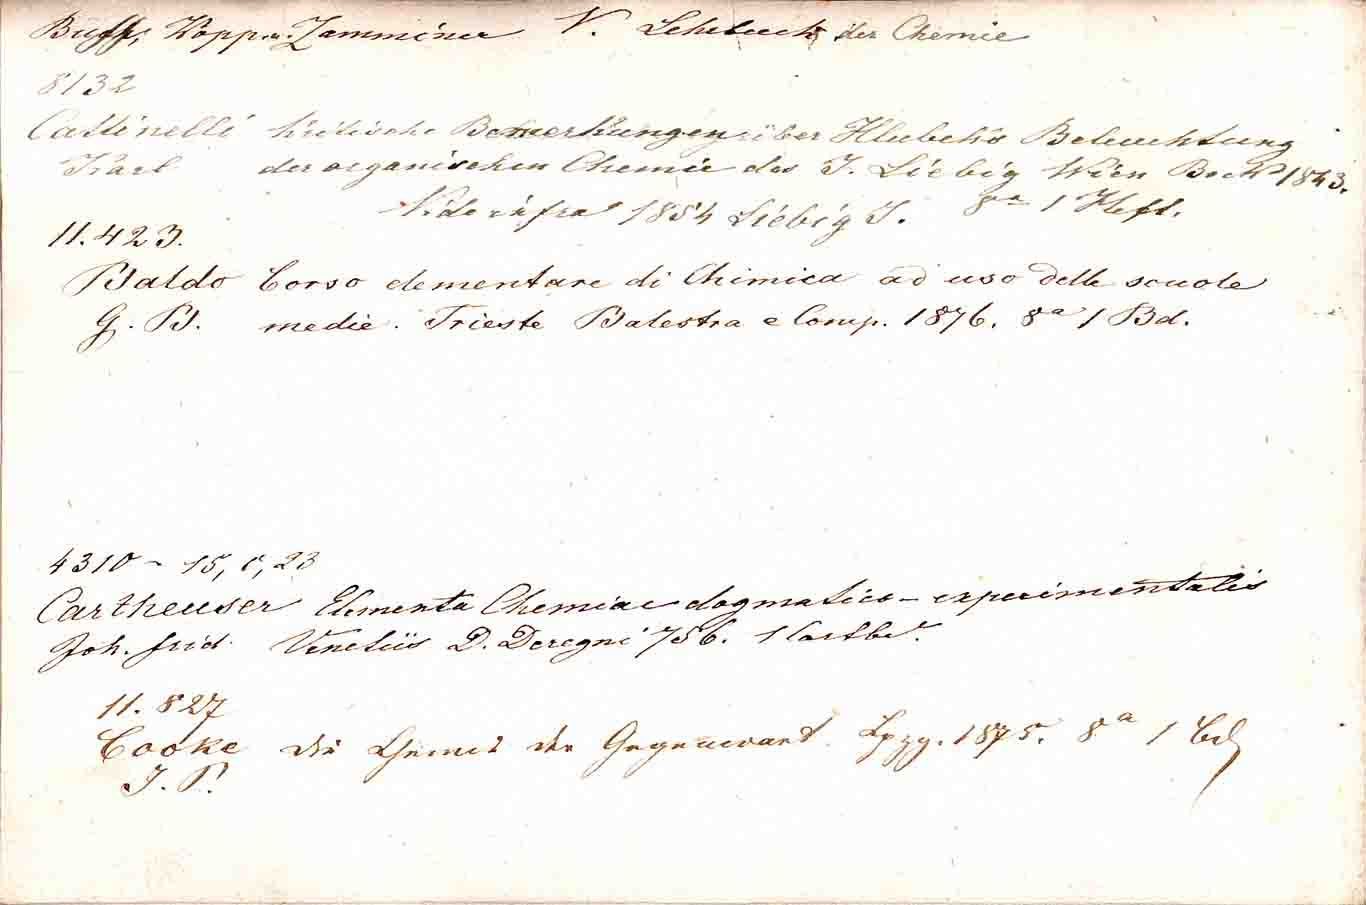 Buff, Kopp u. Zamminer V. Lehrbuch der Chemie
8132
Cattinelli kritische Bemerkungen über Hlubek's Beleuchtung
Karl der organischen Chemie des J. Liebig Wien Beck 1843.
Vide infra 1854 Liebig J. 8ª 1 Heft.
11.423.
Baldo Corso elementare di Chimica ad uso delle scuole
G. B. medie. Trieste Balestra e Comp. 1876. 8ª 1 Bd.
4310 - 15, c, 23
Cartheuser Elementa Chemiae dogmatico-experimentalis
Joh. frid. Venetiis D. Deregni 756. 1
11. 827
Cooke Die Chemie der Gegenwart. Lpzg. 1875. 8ª 1 Bd
J. P.